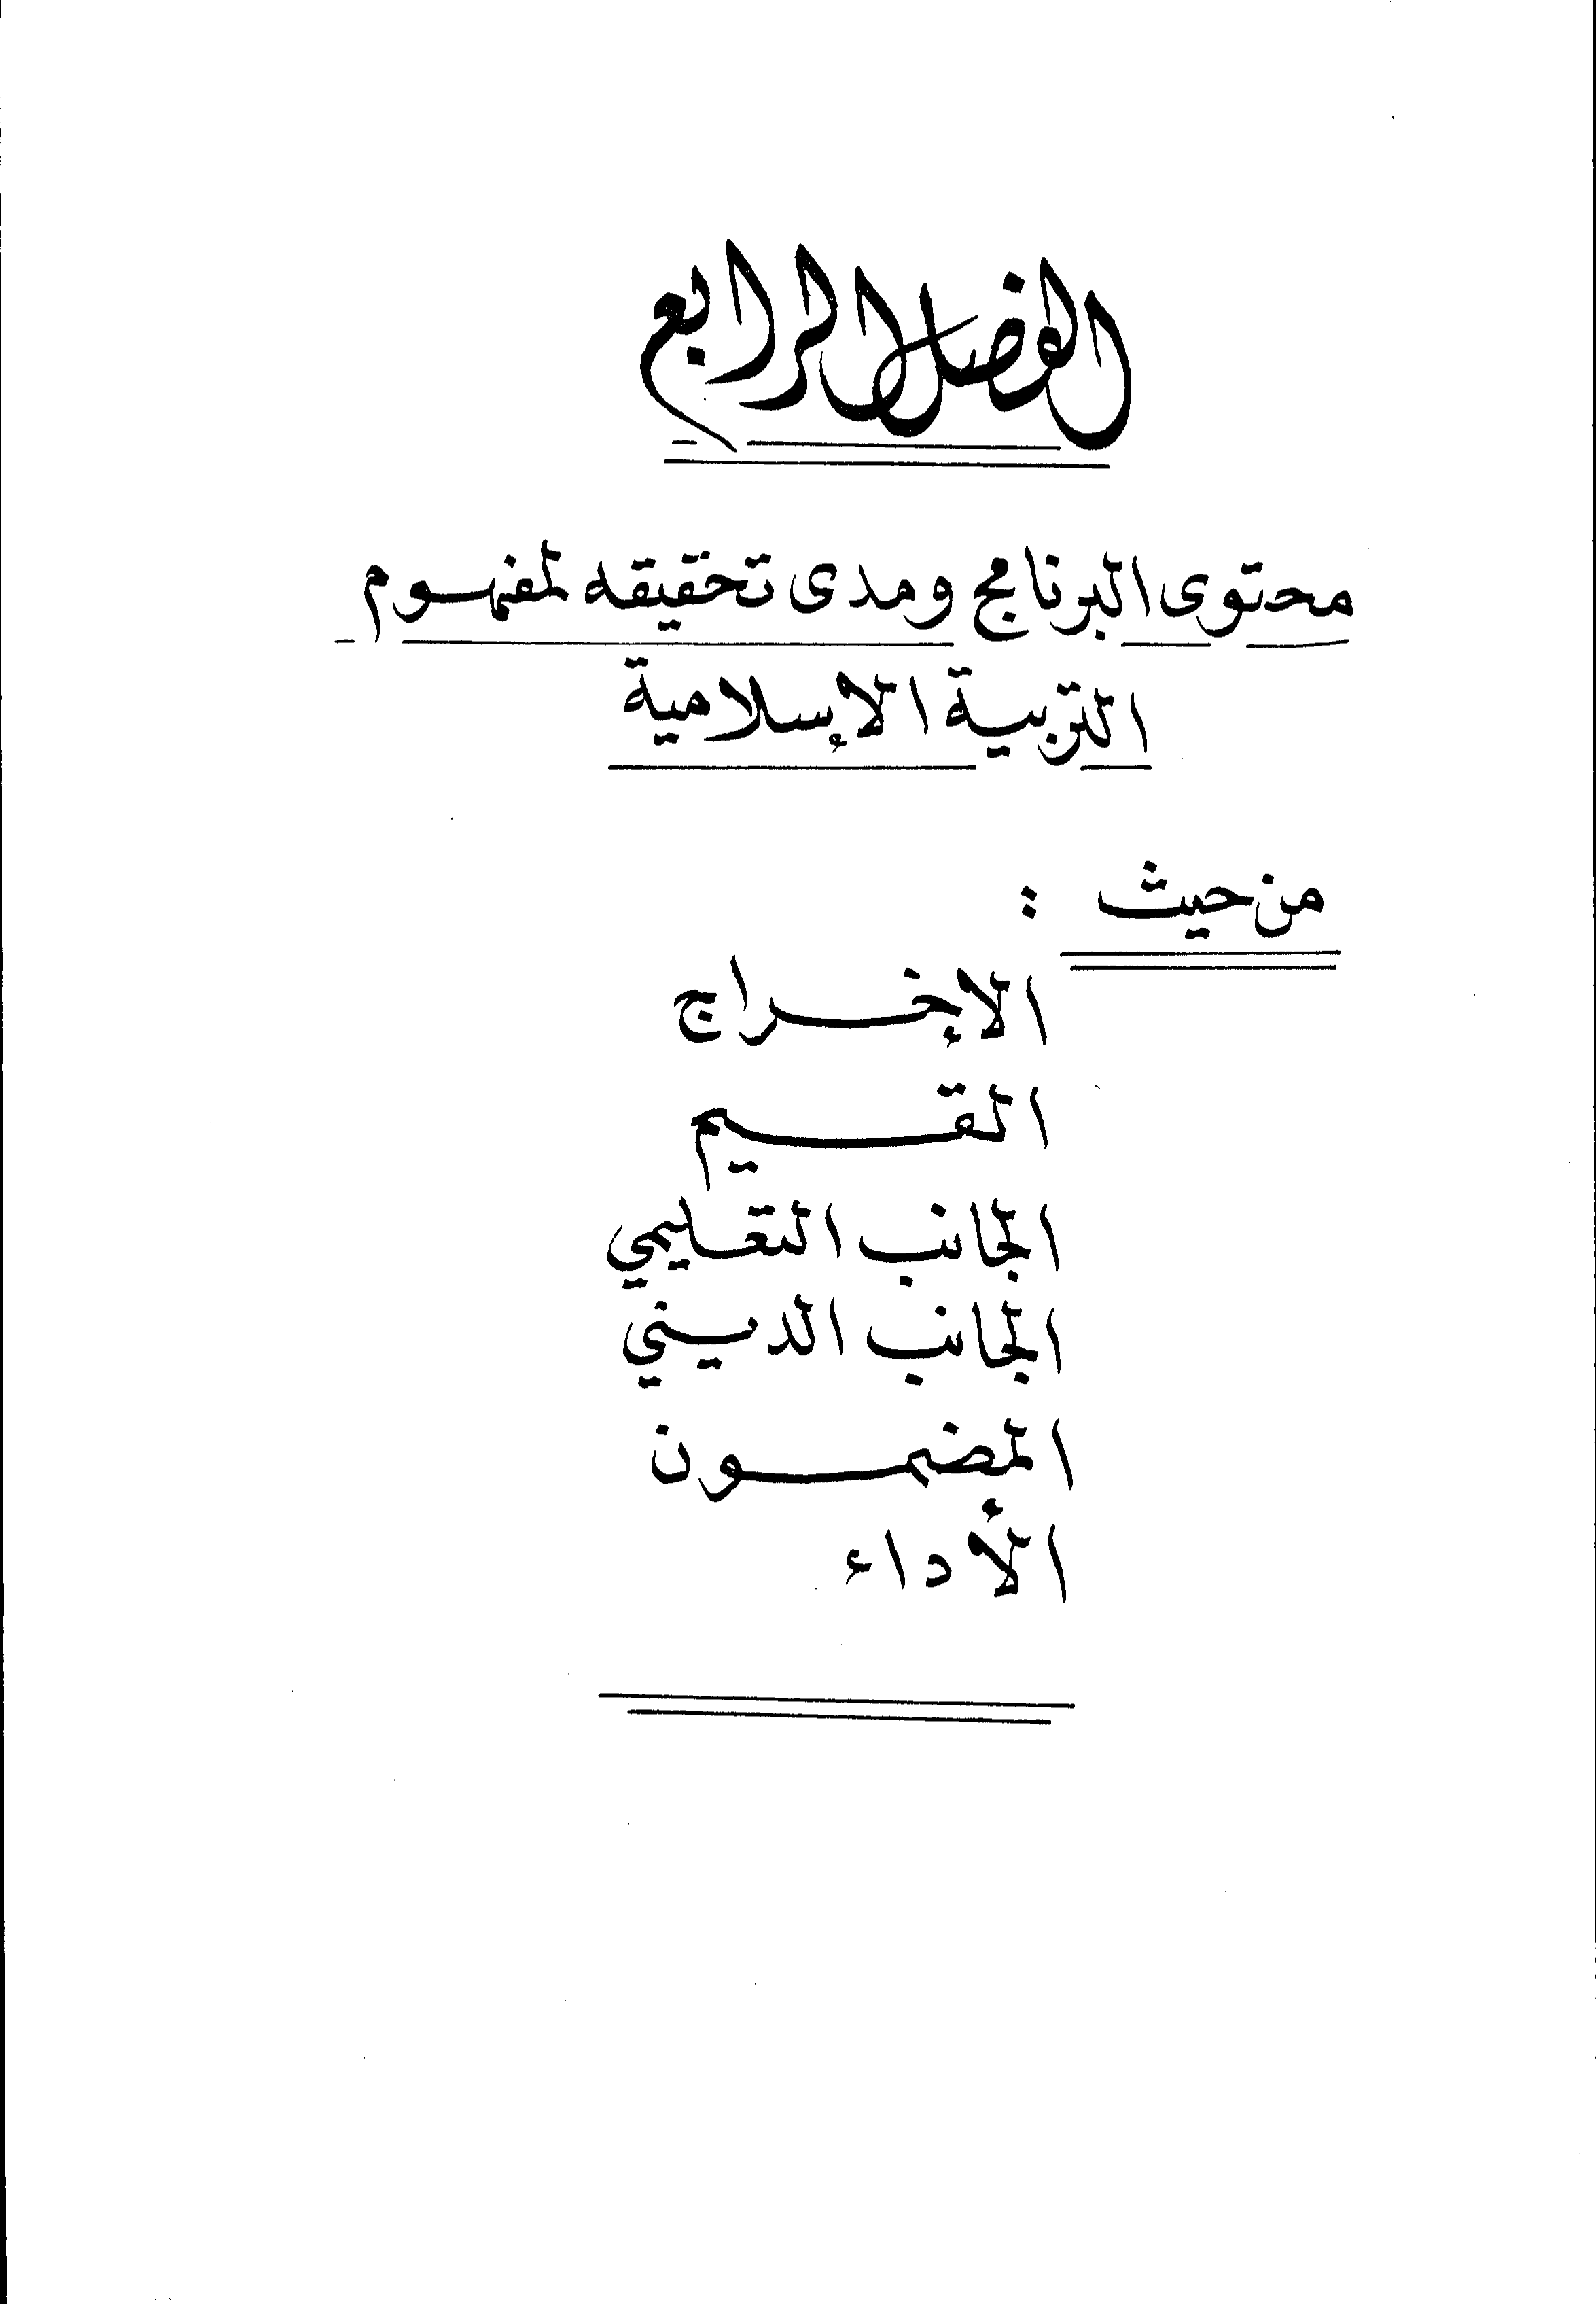 الفصل الرابع
محتوى البرنامج ومدى تحقيقه لمفهوم
التربية الإسلامية
من حيث :
الإخراج
القيم
الجانب التعليمي
الجانب الديني
المضمون
الأداء